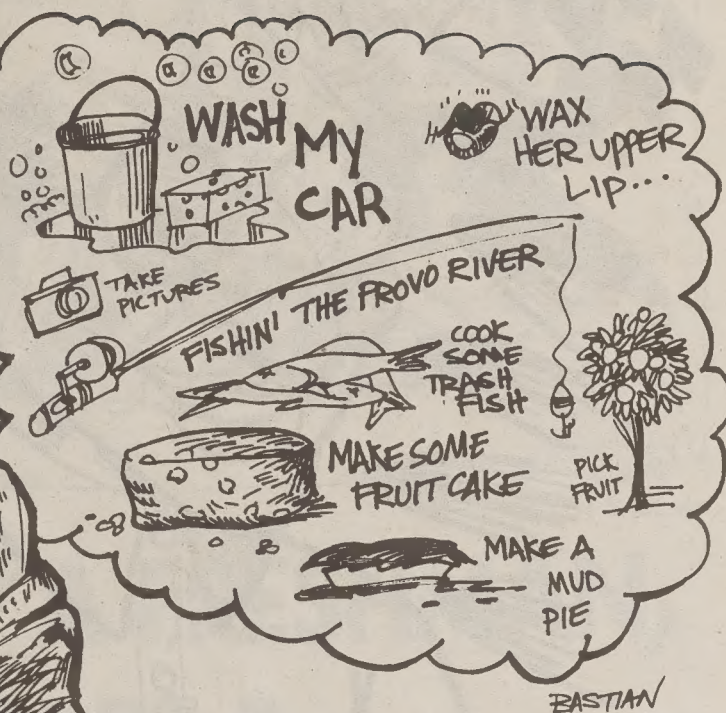 WASH
MY
CAR
WAX
HER UPPER
LIP...
TAKE
PICTURES
FISHIN' THE PROVO RIVER
COOK
SOME
TRASH
FISH
MAKE SOME
FRUIT CAKE
PICK
FRUIT
MAKE A
MUD
PIE
BASTIAN